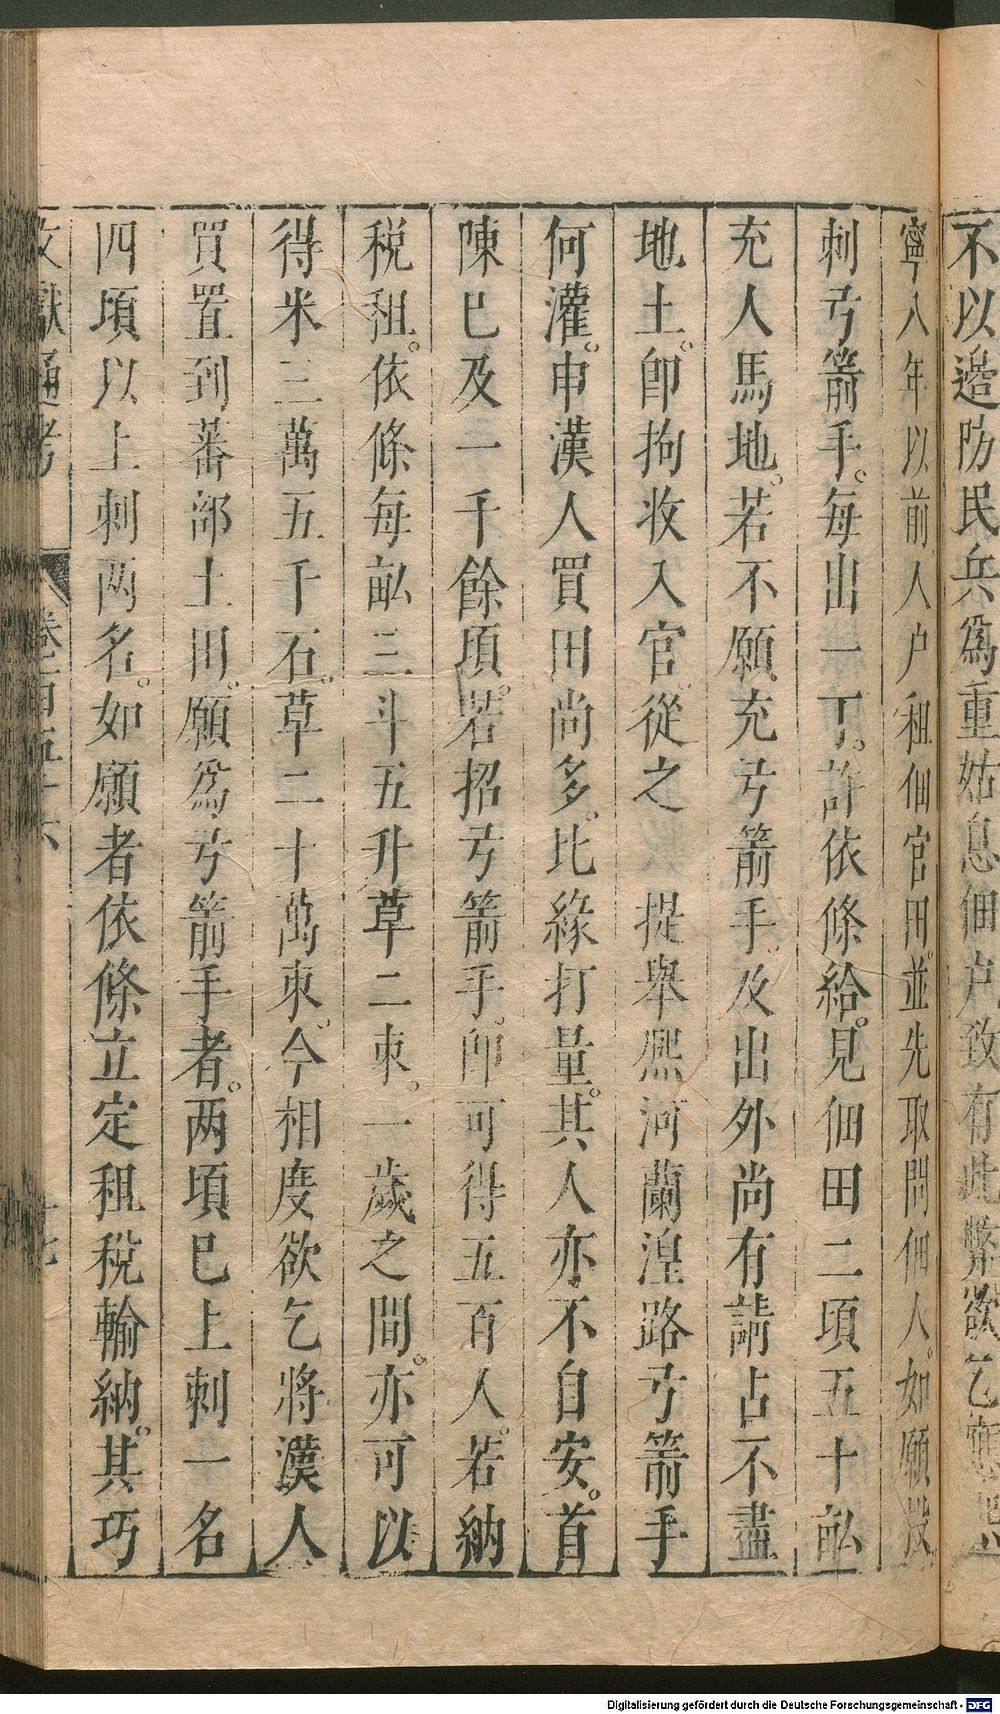 不以邉防民兵為重姑息佃戸致有此弊欲乞
寧八年以前人户租佃官田並先取問佃人如願投
刺弓箭手每出一丁許依條給見佃田二頃五十畆
充人馬地若不願充弓箭手及出外尚有請占不盡
地土卽拘收入官從之 提舉熈河蘭湟路弓箭手
何灌申漢人買田尚多比緣打量其人亦不自安首
陳巳及一千餘頃若招弓箭手卽可得五百人若納
税租依條每畆三斗五升草二束一歲之間亦可以
得米三萬五千石草二十萬束今相度欲乞將漢人
買置到蕃部土田願爲弓箭手者两頃巳上刺一名
四頃以上刺两名如願者依條立定租税輸納其巧
文獻通考 卷一百五十六
Digitalisierung gefördert durch die Deutsche Forschungsgemeinschaft - DFG